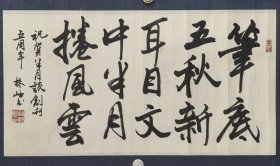 筆底
五秋新
耳目文
中半月
捲風雲
祝賀半月談創刊
五周年 林岫書